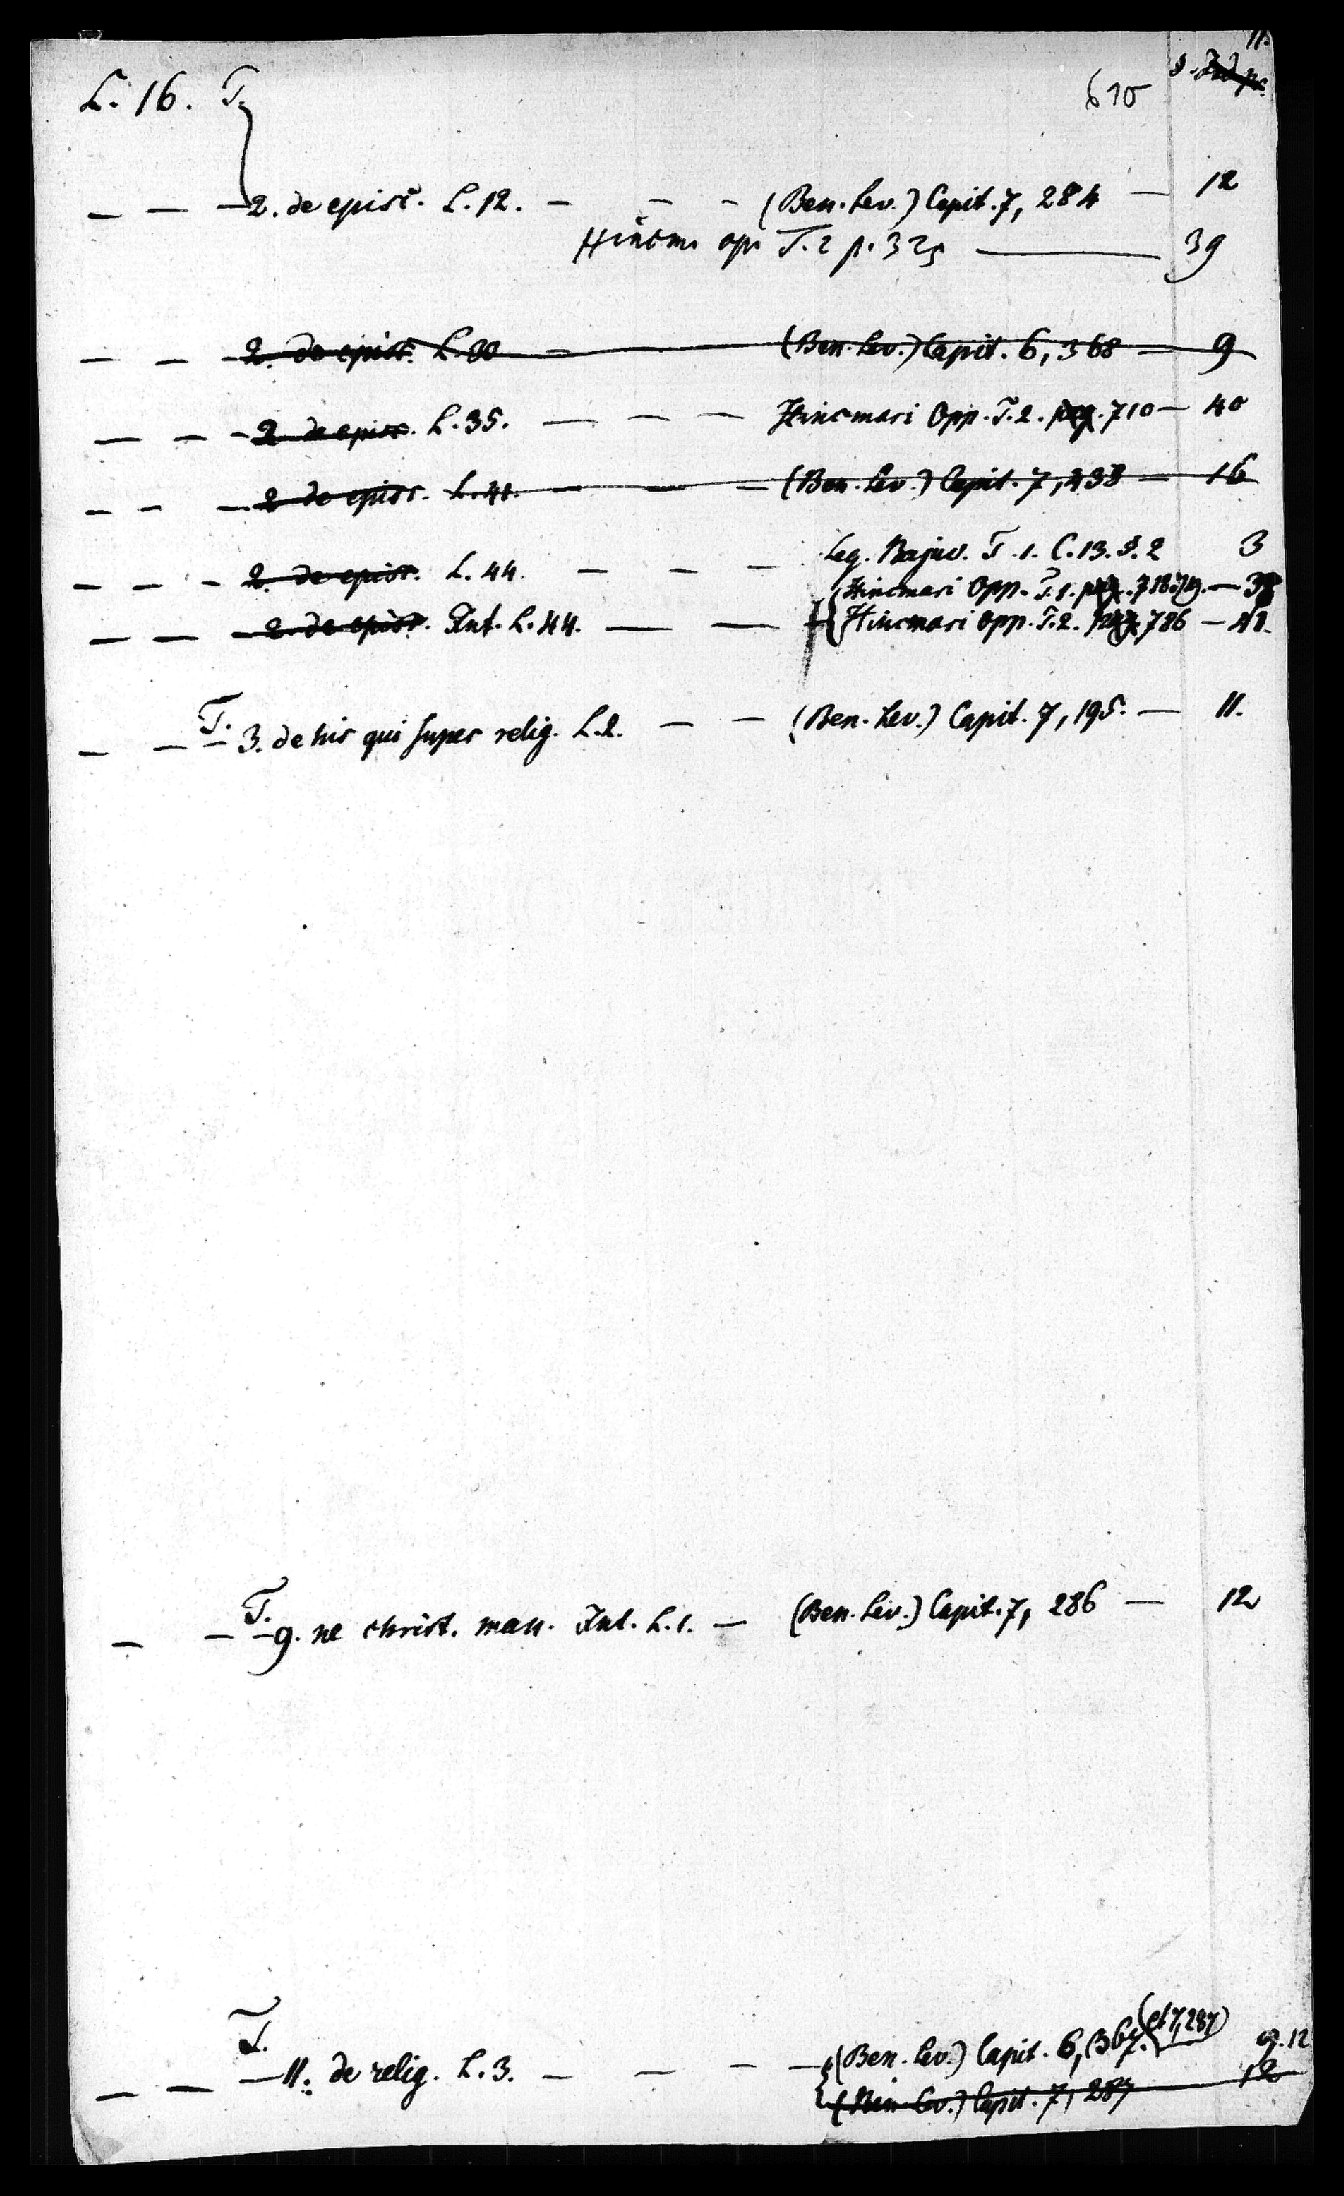 11.
L. 16. T. 610 S.
— — — 2. de episc. L. 12. — — — (Ben. Lev.) Capit. 7, 284 — 12
Hincm. op. T. 2 p. 325 — 39
— — 2. de episc. L. 00 — (Ben. Lev.) Capit. 6, 368 — 9
— — — 2 de episc. L. 35. — — — Hincmari Opp. T. 2. pag. 710 — 40
— — — 2 de episc. L. 41. — — — (Ben. Lev.) Capit. 7, 438 — 16
Leg. Bajuv. T. 1. C. 13. §. 2 3
— — — 2. de episc. L. 44. — — — Hincmari Opp. T. 1. pag. 718. —
— — — 2. de episc. Int. L. 44. — — Hincmari Opp. T. 2. pag. 786 —
— — T. — 3. de his qui super relig. L. 2. — — (Ben. Lev.) Capit. 7, 195. — 11.
— — T. — 9. ne christ. man. Int. L. 1. — (Ben. Lev.) Capit. 7, 286 — 12
(et 7, 287)
— — T. — 11. de relig. L. 3. — — — — (Ben. Lev.) Capit. 6, 367. 9. 12
(Ben. Lev.) Capit. 7, 287 12